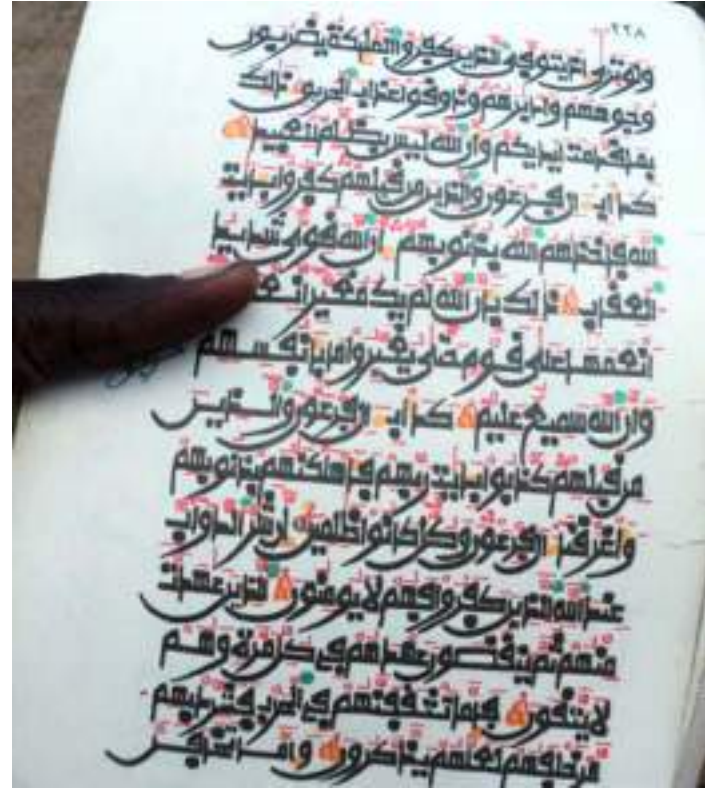 ٢٢٨
ولو ترى إذ يتوفى الذين كفروا الملئكة يضربون
وجوههم وأدبرهم وذوقوا عذاب الحريق ذلك
بما قدمت أيديكم وأن الله ليس بظلم للعبيد
كدأب ءال فرعون والذين من قبلهم كفروا بئايت
الله فأخذهم الله بذنوبهم إن الله قوي شديد
العقاب ذلك بأن الله لم يك مغيرا نعمة
أنعمها على قوم حتى يغيروا ما بأنفسهم
وأن الله سميع عليم كدأب ءال فرعون والذين
من قبلهم كذبوا بئايت ربهم فأهلكنهم بذنوبهم
وأغرقنا ءال فرعون وكل كانوا ظلمين إن شر الدواب
عند الله الذين كفروا فهم لا يومنون الذين عهدت
منهم ثم ينقضون عهدهم في كل مرة وهم
لا يتقون فإما تثقفنهم في الحرب فشرد بهم
من خلفهم لعلهم يذكرون وإما تخافن